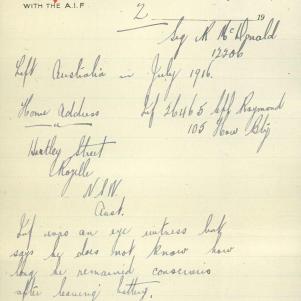 WITH THE A.I.F
2
19
Sig N McDonald
17206
Left Australia in July 1916.
Home Address Inf 26465 Spr Raymond
105 How Bty
Hartley Street
Rozelle
N.S.W
Aust.
Inf was an eye witness but
says he does not know how
long he remained conscious
after leaving battery.